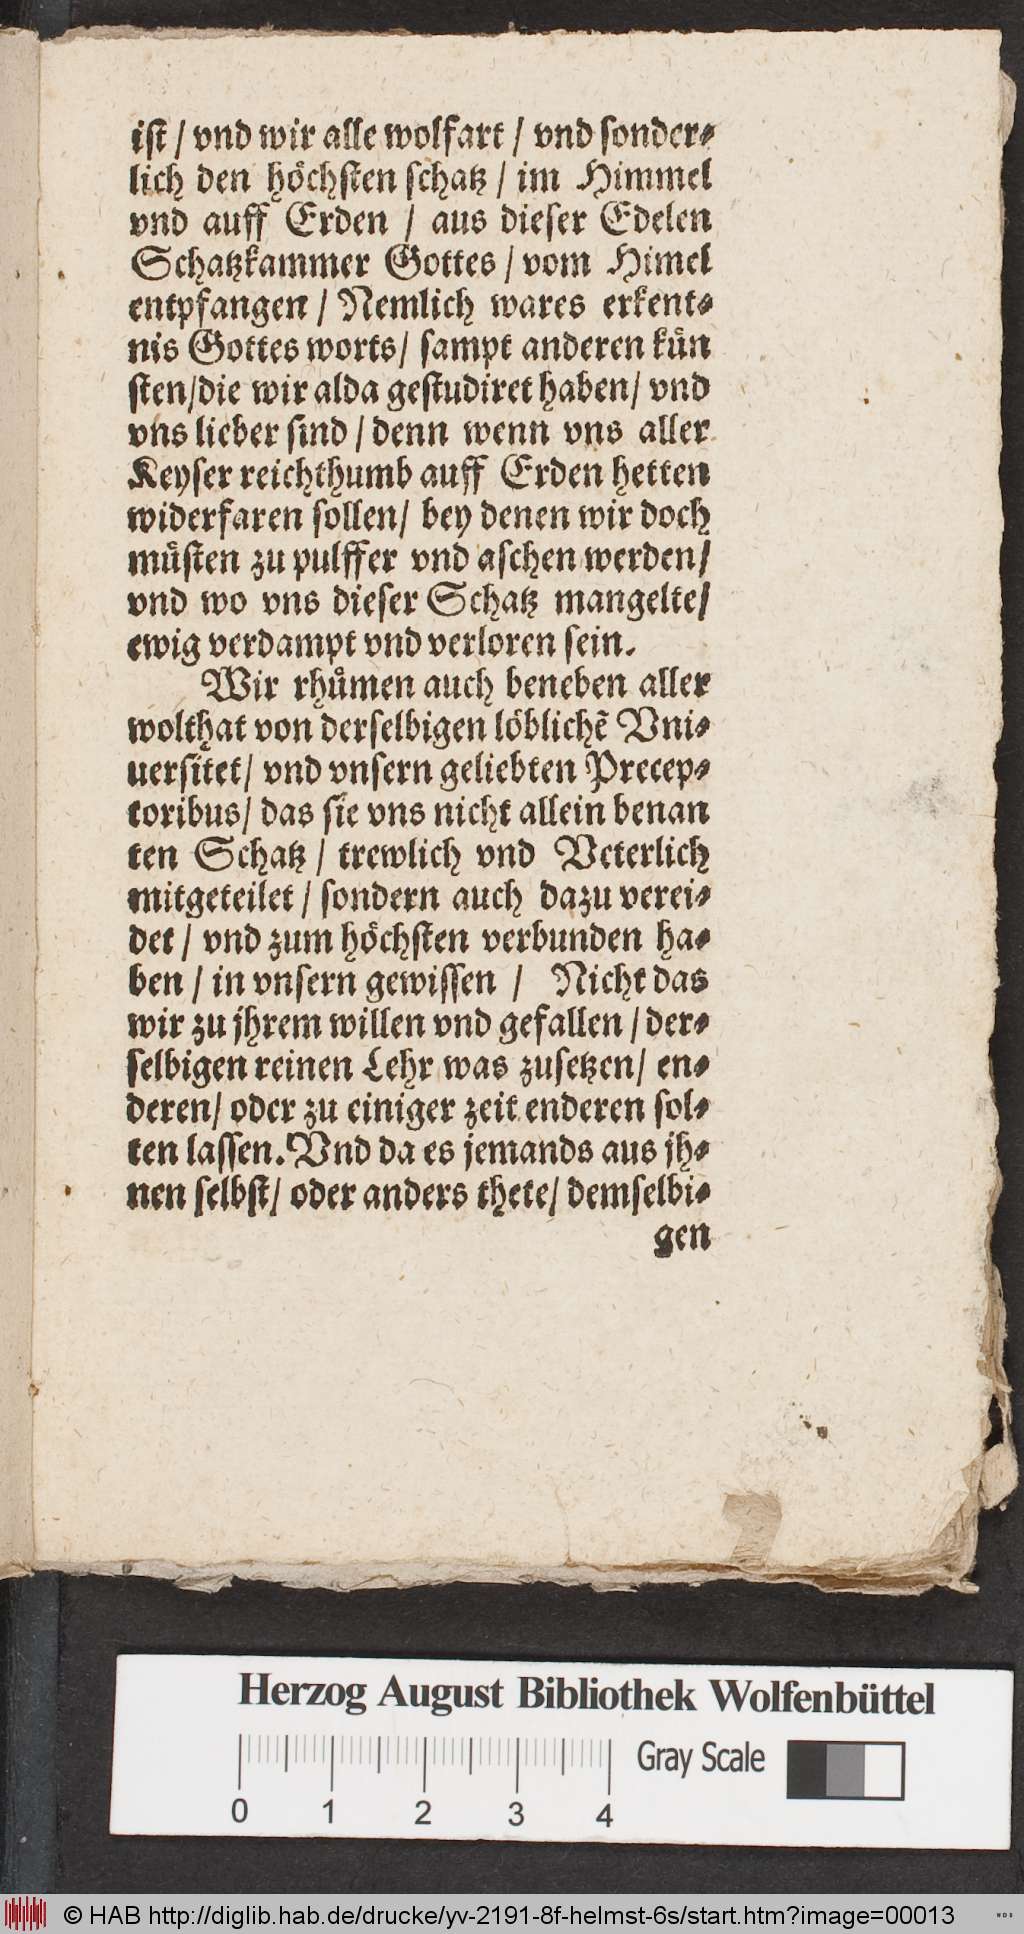 ist / vnd wir alle wolfart / vnd sonder⸗
lich den höchsten schatz / im Himmel
vnd auff Erden / aus dieser Edelen
Schatzkammer Gottes / vom Himel
entpfangen / Nemlich wares erkent⸗
nis Gottes worts / sampt anderen kün
sten / die wir alda gestudiret haben / vnd
vns lieber sind / denn wenn vns aller
Keyser reichthumb auff Erden hetten
widerfaren sollen / bey denen wir doch
müsten zu pulffer vnd aschen werden /
vnd wo vns dieser Schatz mangelte /
ewig verdampt vnd verloren sein.
Wir rhümen auch beneben aller
wolthat von derselbigen löblichē Vni⸗
uersitet / vnd vnsern geliebten Precep⸗
toribus / das sie vns nicht allein benan
ten Schatz / trewlich vnd Veterlich
mitgeteilet / sondern auch dazu verei⸗
det / vnd zum höchsten verbunden ha⸗
ben / in vnsern gewissen / Nicht das
wir zu jhrem willen vnd gefallen / der⸗
selbigen reinen Lehr was zusetzen / en⸗
deren / oder zu einiger zeit enderen sol⸗
ten lassen. Vnd da es jemands aus jh⸗
nen selbst / oder anders thete / demselbi⸗
gen
Herzog August Bibliothek Wolfenbüttel
Gray Scale
0 1 2 3 4
© HAB http://diglib.hab.de/drucke/yv-2191-8f-helmst-6s/start.htm?image=00013